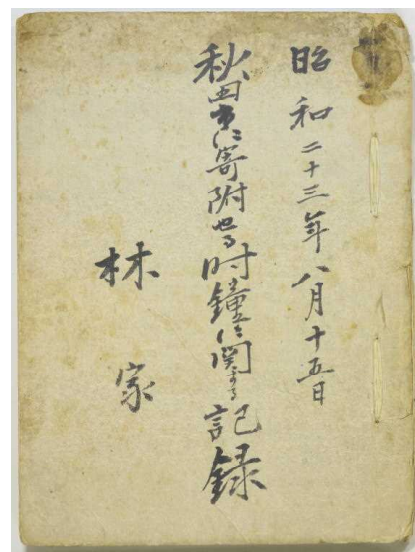 昭和二十三年八月十五日
秋田市に寄附せる時鐘に関する記録
林家